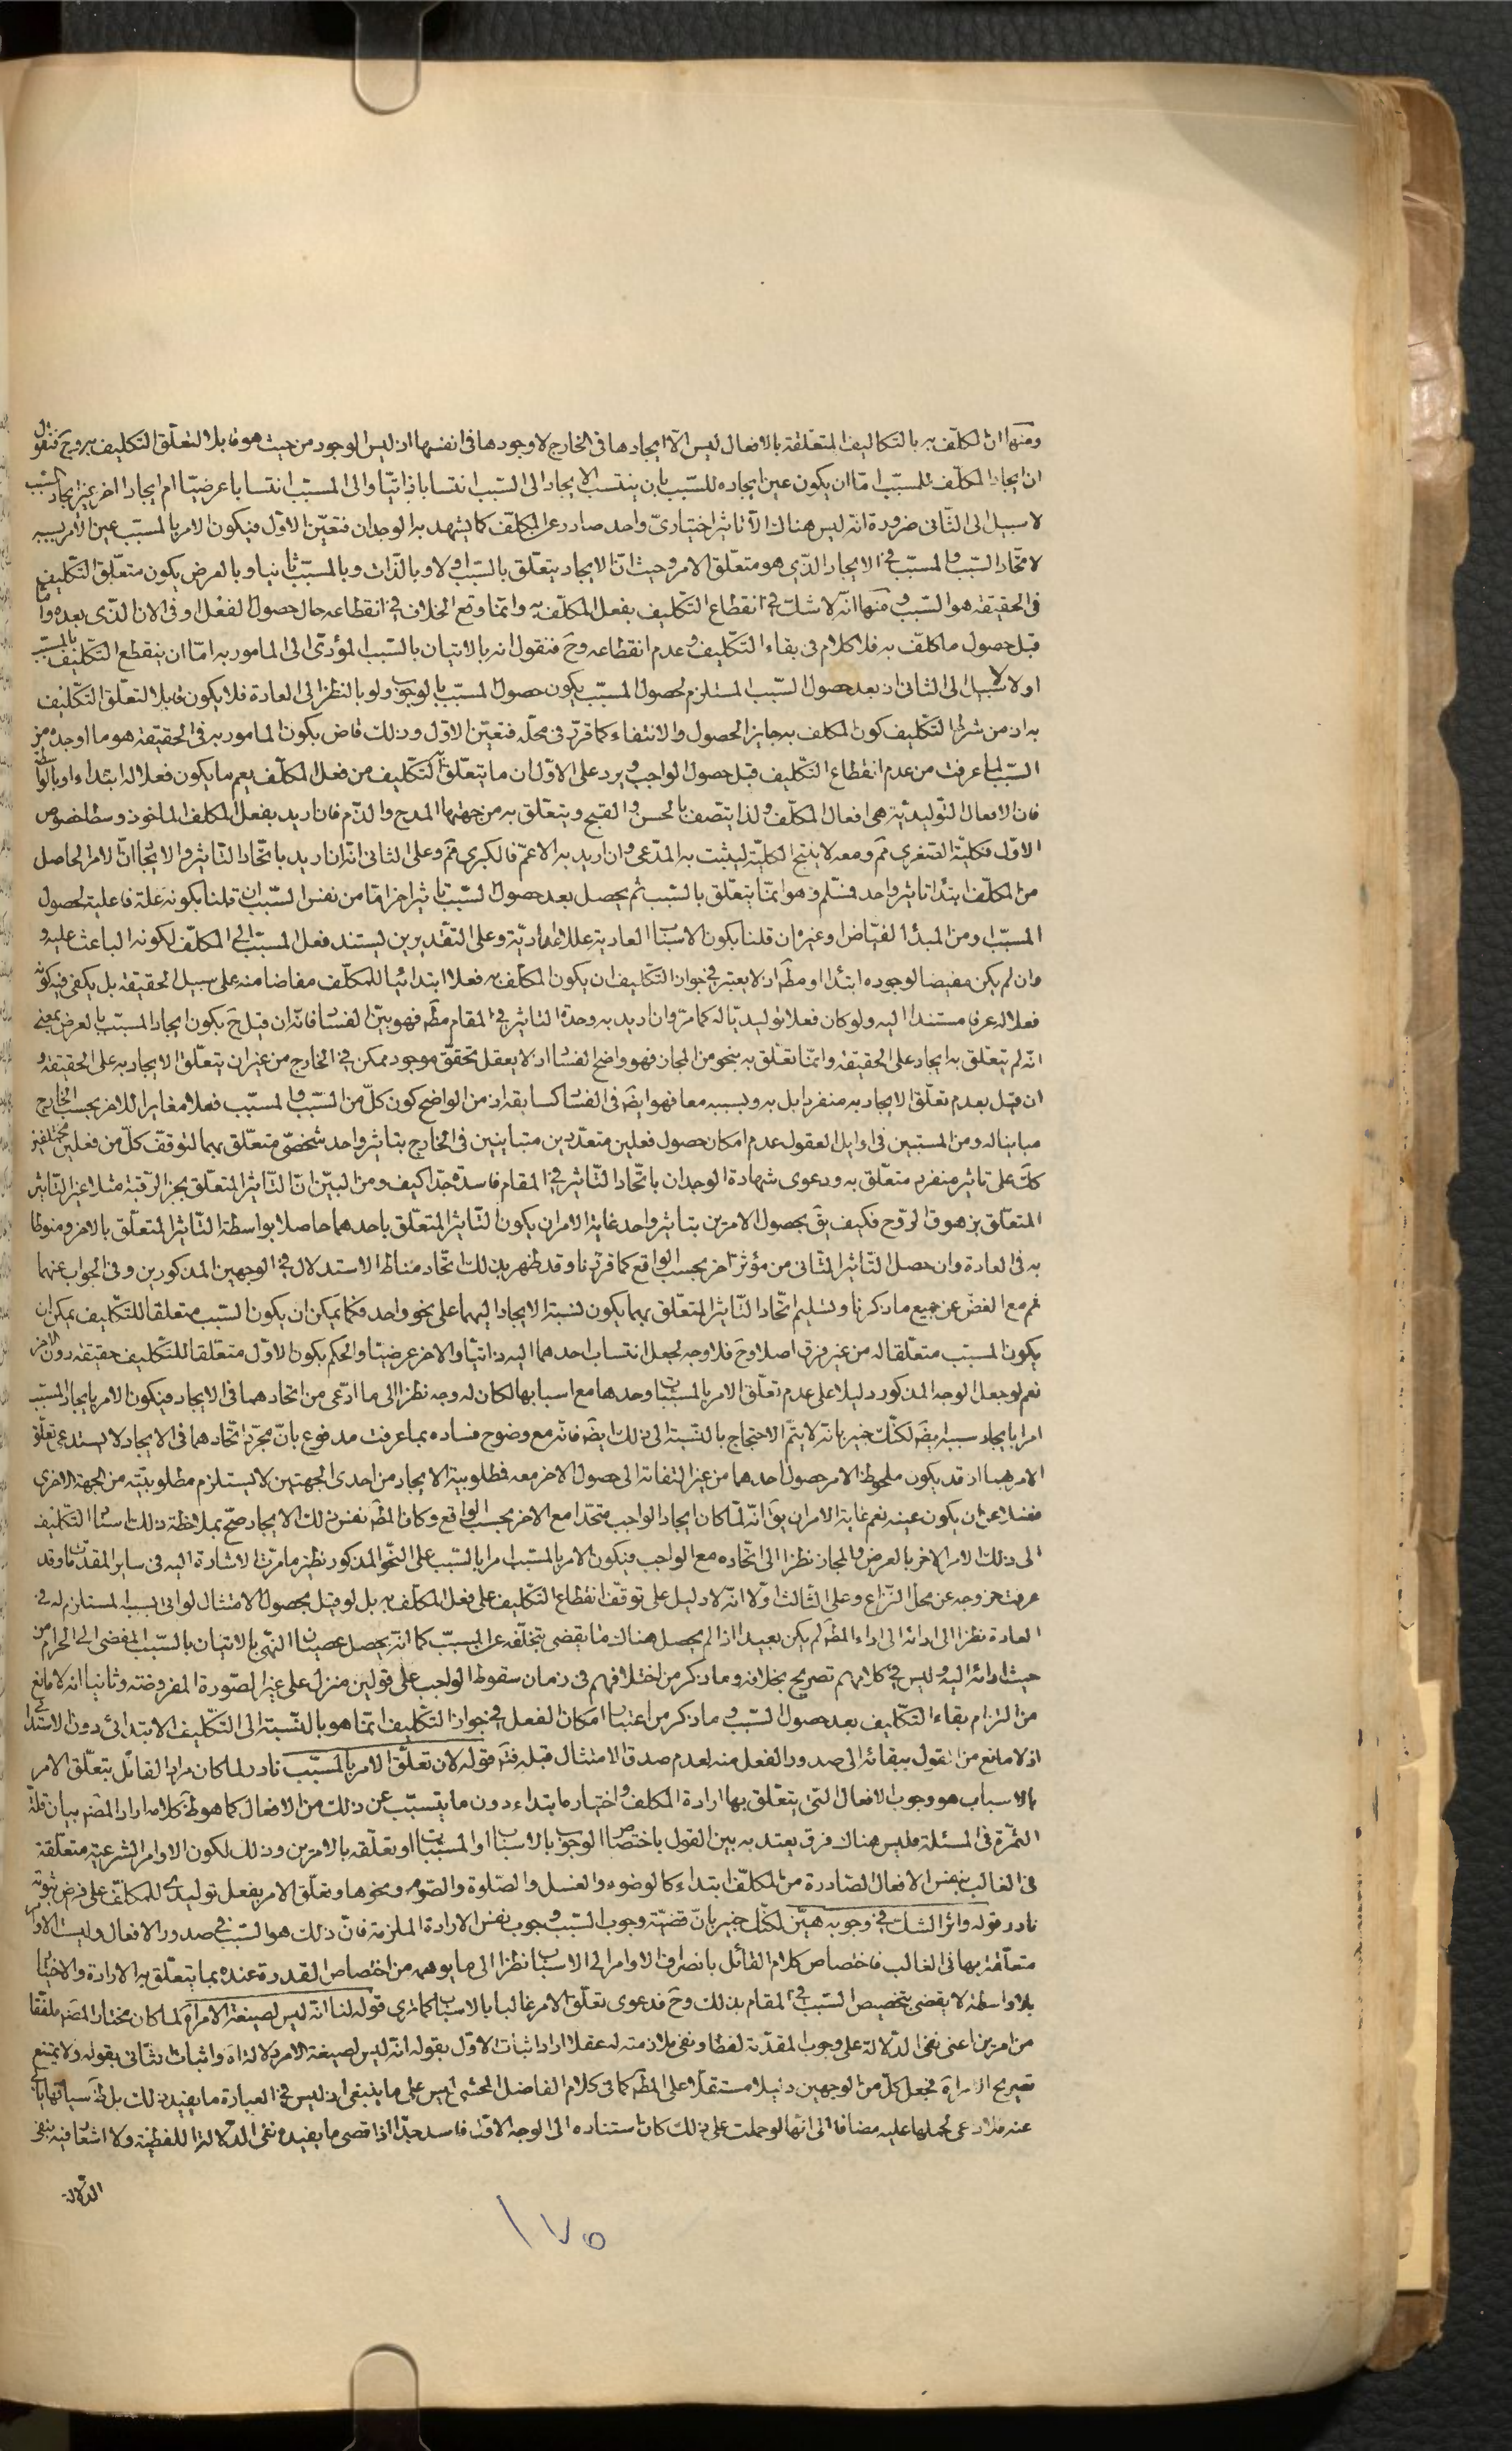 ومنها ان المكلف به بالتكاليف المتعلقة بالافعال ليس الا ايجادها فى الخارج لا وجودها فى انفسها اذ ليس الوجود من حيث هو قابلا لتعلق التكليف به وح فنقول
ان ايجاد المكلف للمسبب اما ان يكون عين ايجاده للسبب بان ينتسب الايجاد الى السبب انتسابا ذاتيا والى المسبب انتسابا عرضيا ام ايجادا اخر غير ايجاد السبب
لا سبيل الى الثانى ضرورة انه ليس هناك الا تاثير اختيارى واحد صادر عن المكلف كما يشهد به الوجدان فتعين الاول فيكون الامر بالمسبب عين الامر بسببه
لاتحاد السبب والمسبب فى الايجاد الذى هو متعلق الامر وحيث ان الايجاد يتعلق بالسبب اولا وبالذات وبالمسبب ثانيا وبالعرض يكون متعلق التكليف
فى الحقيقة هو السبب ومنها انه لا شك فى انقطاع التكليف بفعل المكلف به وانما وقع الخلاف فى انقطاعه حال حصول الفعل او فى الان الذى بعده واما
قبل حصول ما كلف به فلا كلام فى بقاء التكليف وعدم انقطاعه وح فنقول انه بالاتيان بالسبب المؤدى الى المامور به اما ان ينقطع التكليف بالمسبب
اولا لا سبيل الى الثانى اذ بعد حصول السبب المستلزم لحصول المسبب يكون حصول المسبب بالوجوب ولو بالنظر الى العادة فلا يكون قابلا لتعلق التكليف
به اذ من شرط التكليف كون المكلف به جايز الحصول والانتفاء كما قرر فى محله فتعين الاول وذلك قاض بكون المامور به فى الحقيقة هو ما اوجده من
السبب لما عرفت من عدم انقطاع التكليف قبل حصول الواجب ويرد على الاول ان ما يتعلق به التكليف من فعل المكلف يعم ما يكون فعلا له ابتداء او بالواسطة
فان الافعال التوليدية هى افعال المكلف ولذا يتصف بالحسن والقبح ويتعلق به من جهتها المدح والذم فان اريد بفعل المكلف الماخوذ وسطا خصوص
الاول فكلية الصغرى مم ومعه لا ينتج الكلية ليثبت به المدعى وان اريد به الاعم فالكبرى مم وعلى الثانى انه ان اريد باتحاد التاثير والايجاد ان الامر الحاصل
من المكلف ابتداء تاثير واحد فمسلم وهو انما يتعلق بالسبب ثم يحصل بعد حصول السبب تاثير اخر اما من نفس السبب ان قلنا بكونه علة فاعلية لحصول
المسبب او من المبدأ الفياض او غيره ان قلنا بكون الاسباب العادية عللا اعدادية وعلى التقديرين يستند فعل المسبب الى المكلف لكونه الباعث عليه و
وان لم يكن مفيضا لوجوده ابتداء ومط اذ لا يعتبر فى جواز التكليف ان يكون المكلف به فعلا ابتدائيا للمكلف مفاضا منه على سبيل الحقيقة بل يكفى فيه كونه
فعلا له عرفا مستندا اليه ولو كان فعلا توليديا له كما مر وان اريد به وحدة التاثير فى المقام مط فهو بين الفساد فانه ان قيل ح بكون ايجاد المسبب بالعرض بمعنى
انه لم يتعلق به ايجاد على الحقيقة وانما تعلق به بنحو من المجاز فهو واضح الفساد اذ لا يعقل تحقق موجود ممكن فى الخارج من غير ان يتعلق الايجاد به على الحقيقة و
ان قيل بعدم تعلق الايجاد به منفردا بل به وبسببه معا فهو ايض فى الفساد كسابقه اذ من الواضح كون كل من السبب والمسبب فعلا مغايرا للاخر بحسب الخارج
مباينا له ومن المستبين فى اوايل العقول عدم امكان حصول فعلين متعددين متباينين فى الخارج بتاثير واحد شخصى متعلق بهما لتوقف كل من فعلين مختلفين
كك على تاثير منفرد متعلق به ودعوى شهادة الوجدان باتحاد التاثير فى المقام فاسدة جدا كيف ومن البين ان التاثير المتعلق بحز الرقبة مثلا غير التاثير
المتعلق بزهوق الروح فكيف يق بحصول الامرين بتاثير واحد غاية الامر ان يكون التاثير المتعلق باحدهما حاصلا بواسطة التاثير المتعلق بالاخر ومنوطا
به فى العادة وان حصل التاثير الثانى من مؤثر اخر بحسب الواقع كما قررنا وقد ظهر بذلك اتحاد مناط الاستدلال فى الوجهين المذكورين وفى الجواب عنهما
ثم مع الغض عن جميع ما ذكرنا وتسليم اتحاد التاثير المتعلق بهما يكون نسبة الايجاد اليهما على نحو واحد فكما يمكن ان يكون السبب متعلقا للتكليف يمكن ان
يكون المسبب متعلقا له من غير فرق اصلا وح فلا وجه لجعل انتساب احدهما اليه ذاتيا والاخر عرضيا والحكم بكون الاول متعلقا للتكليف حقيقة دون الاخر
نعم لو جعل الوجه المذكور دليلا على عدم تعلق الامر بالمسببات وحدها مع اسبابها لكان له وجه نظرا الى ما ادعى من اتحادهما فى الايجاد فيكون الامر بايجاد المسبب
امرا بايجاد سببه ايض لكنك خبير بانه لا يتم الاحتجاج بالنسبة الى ذلك ايض فانه مع وضوح فساده بما عرفت مدفوع بان مجرد اتحادهما فى الايجاد لا يستدعى تعلق
الامر بهما اذ قد يكون ملحوظ الامر حصول احدهما من غير التفاته الى حصول الاخر معه فمطلوبية الايجاد من احدى الجهتين لا يستلزم مطلوبيته من الجهة الاخرى
فضلا عن ان يكون عينه نعم غاية الامر ان يق انه لما كان ايجاد الواجب متحدا مع الاخر بحسب الواقع وكان المط نفس ذلك الايجاد صح بملاحظة ذلك اسناد التكليف
الى ذلك الامر الاخر بالعرض والمجاز نظرا الى اتحاده مع الواجب فيكون الامر بالمسبب امرا بالسبب على النحو المذكور نظير ما مرت الاشارة اليه فى ساير المقدمات وقد
عرفت خروجه عن محل النزاع وعلى الثالث اولا انه لا دليل على توقف انقطاع التكليف على فعل المكلف به بل لو قيل بحصول الامتثال لو اتى بسببه المستلزم له فى
العادة نظرا الى ادائه الى اداء المط لم يكن بعيدا اذا لم يحصل هناك ما يقضى بتخلفه عن السبب كما انه يحصل عصيان النهى بالاتيان بالسبب المفضى الى الحرام من
حيث ادائه اليه وليس فى كلامهم تصريح بخلافه وما ذكر من اختلافهم فى زمان سقوط الواجب على قولين منزل على غير الصورة المفروضة وثانيا انه لا مانع
من التزام بقاء التكليف بعد حصول السبب وما ذكر من اعتبار امكان الفعل فى جواز التكليف انما هو بالنسبة الى التكليف الابتدائى دون الاستدامى
اذ لا مانع من القول ببقائه الى صدور الفعل منه لعدم صدق الامتثال قبله فت قوله لان تعلق الامر بالمسبب نادر لما كان مراد القائل بتعلق الامر
بالاسباب هو وجوب الافعال التى يتعلق بها ارادة المكلف واختياره ابتداء دون ما يتسبب عن ذلك من الافعال كما هو ظ كلامه اراد المصم بيان قلة
الثمرة فى المسئلة فليس هناك فرق يعتد به بين القول باختصاص الوجوب بالاسباب او المسببات او تعلقه بالامرين وذلك لكون الاوامر الشرعية متعلقة
فى الغالب بنفس الافعال الصادرة من المكلف ابتداء كالوضوء والغسل والصلوة والصوم ونحوها وتعلق الامر بفعل توليدى للمكلف على فرض ثبوته
نادر قوله واثر الشك فى وجوبه هين لكنك خبير بان قضية وجوب السبب وجوب نفس الارادة الملزمة فان ذلك هو السبب فى صدور الافعال وليست الاوامر
متعلقة بها فى الغالب فاختصاص كلام القائل بانصراف الاوامر الى الاسباب نظرا الى ما يوهمه من اختصاص القدرة عنده بما يتعلق به الارادة والاختيار
بلا واسطة لا يقضى بتخصيص السبب فى المقام بذلك وح فدعوى تعلق الامر غالبا بالاسباب كما ترى قوله لنا انه ليس لصيغة الامر اه لما كان مختار المصم ملفقا
من امرين اعنى نفى الدلالة على وجوب المقدمة لفظا ونفى ملازمته له عقلا اراد اثبات الاول بقوله انه ليس لصيغة الامر دلالة اه واثبات الثانى بقوله ولا يمتنع
تصريح الامر اه فجعل كل من الوجهين دليلا مستقلا على المط كما فى كلام الفاضل المحشى ليس على ما ينبغى اذ ليس فى العبارة ما يفيد ذلك بل ظ سياقها ياب
عنه فلا داعى لحملها عليه مضافا الى انها لو حملت على ذلك كان استناده الى الوجه الاول فاسد جدا اذ اقصى ما يفيده نفى الدلالة اللفظية ولا اشعار فيه بنفى
الدلالة
١٧٥